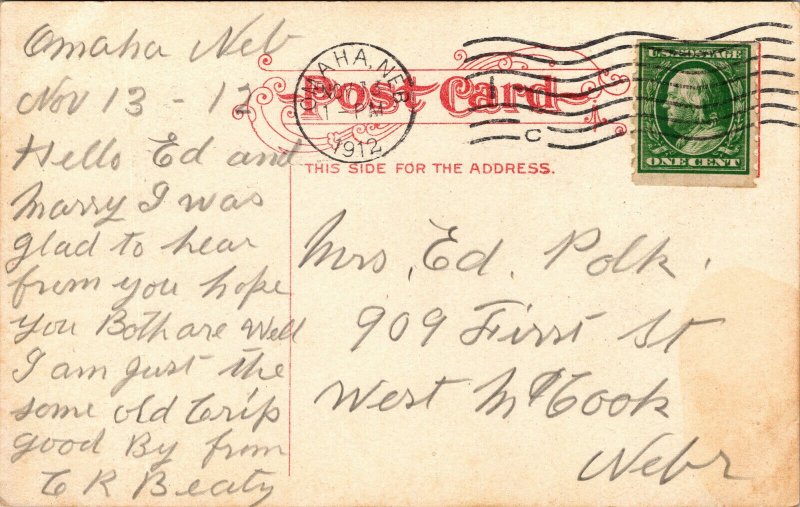 Omaha Neb
Nov 13 - 12
Hello Ed and
Marry I was
glad to hear
from you hope
you Both are Well
I am just the
some old Crip
good By from
C R Beaty
Post Card
THIS SIDE FOR THE ADDRESS.
OMAHA, NEB.
1 - PM
1912
C
U.S. POSTAGE
ONE CENT
Mrs, Ed. Polk.
909 Firrst St
West McCook
Nebr